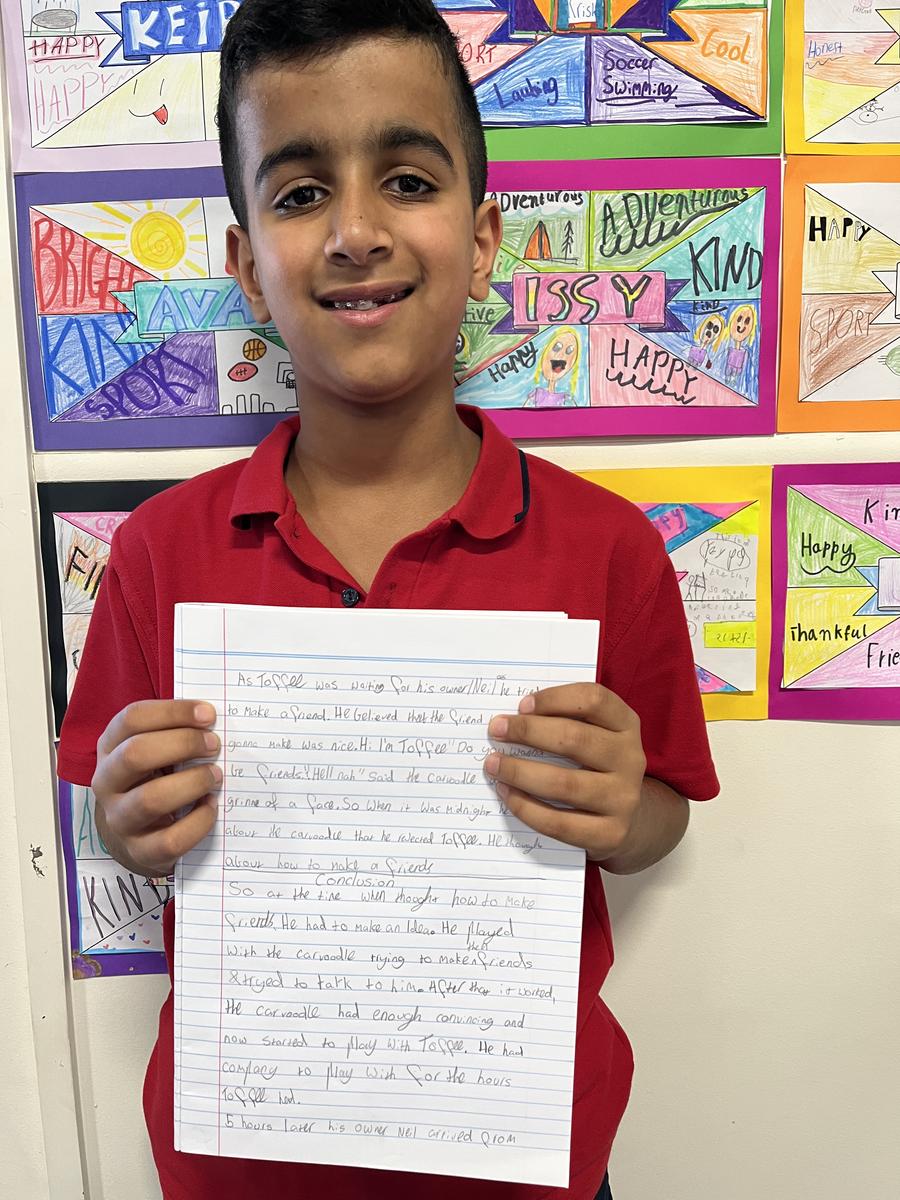 KEIR
HAPPY
HAPPY
SPORT
Cool
Lauhing
Soccer
Swimming
Honest
BRIGHT
AVA
KIND
SPORT
ADventurous
ADventurous
KIND
ISSY
KIND
Happy
HAPPY
HAPPY
SPORT
Happy
Thankful
KIND
As Toffee was waiting for his owner Neil as he
to make a friend. He believed that the friend
gonna make was nice. Hi I'm Toffee" Do you wanna
be friends". Hell nah" Said the carvoodle
grinne of a face. So when it was midnight
about the carvoodle that he rejected Toffee. He
about how to make a friends
Conclusion
So at the time when thought how to make
friends. He had to make an Idea. He played
with the carvoodle trying to make friends
& tryed to talk to him. After that it worked,
the carvoodle had enough convincing and
now started to play with Toffee. He had
company to play with for the hours
Toffee had.
5 hours later his owner Neil arrived from